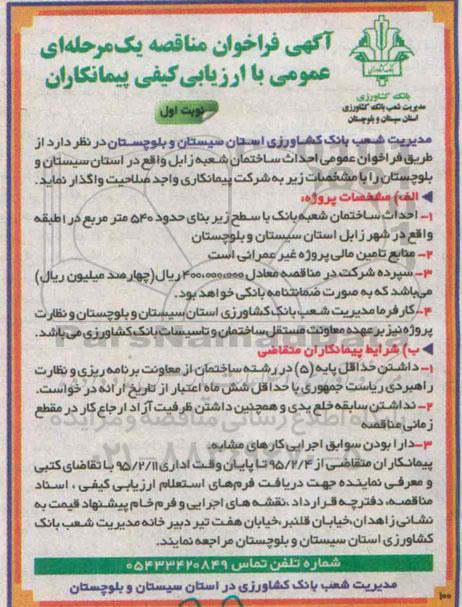 آگهی فراخوان مناقصه یک‌مرحله‌ای
عمومی با ارزیابی کیفی پیمانکاران
بانک کشاورزی
مدیریت شعب بانک کشاورزی
استان سیستان و بلوچستان
نوبت اول
مدیریت شعب بانک کشاورزی استان سیستان و بلوچستان در نظر دارد از
طریق فراخوان عمومی احداث ساختمان شعبه زابل واقع در استان سیستان و
بلوچستان را با مشخصات زیر به شرکت پیمانکاری واجد صلاحیت واگذار نماید.
الف) مشخصات پروژه:
۱- احداث ساختمان شعبه بانک با سطح زیر بنای حدود ۵۴۰ متر مربع در ۱ طبقه
واقع در شهر زابل استان سیستان و بلوچستان
۲- منابع تامین مالی پروژه غیر عمرانی است
۳- سپرده شرکت در مناقصه معادل ۴۰۰،۰۰۰،۰۰۰ ریال (چهارصد میلیون ریال)
می‌باشد که به صورت ضمانتنامه بانکی خواهد بود.
۴- کارفرما مدیریت شعب بانک کشاورزی استان سیستان و بلوچستان و نظارت
پروژه نیز بر عهده معاونت مستقل ساختمان و تاسیسات بانک کشاورزی می‌باشد.
ب) شرایط پیمانکاران متقاضی
۱- داشتن حداقل پایه (۵) در رشته ساختمان از معاونت برنامه ریزی و نظارت
راهبردی ریاست جمهوری با حداقل شش ماه اعتبار از تاریخ ارائه درخواست.
۲- نداشتن سابقه خلع یدی و همچنین داشتن ظرفیت آزاد ارجاع کار در مقطع
زمانی مناقصه
۳- دارا بودن سوابق اجرایی کارهای مشابه.
پیمانکاران متقاضی از ۹۵/۲/۴ تا پایان وقت اداری ۹۵/۲/۱۱ با تقاضای کتبی
و معرفی نماینده جهت دریافت فرم‌های استعلام ارزیابی کیفی ، اسناد
مناقصه، دفترچه قرارداد ،نقشه های اجرایی و فرم خام پیشنهاد قیمت به
نشانی زاهدان، خیابان قلنبر، خیابان هفت تیر دبیر خانه مدیریت شعب بانک
کشاورزی استان سیستان و بلوچستان مراجعه نمایند.
شماره تلفن تماس ۰۵۴۳۳۴۲۰۸۴۹
مدیریت شعب بانک کشاورزی در استان سیستان و بلوچستان
۱۰۰